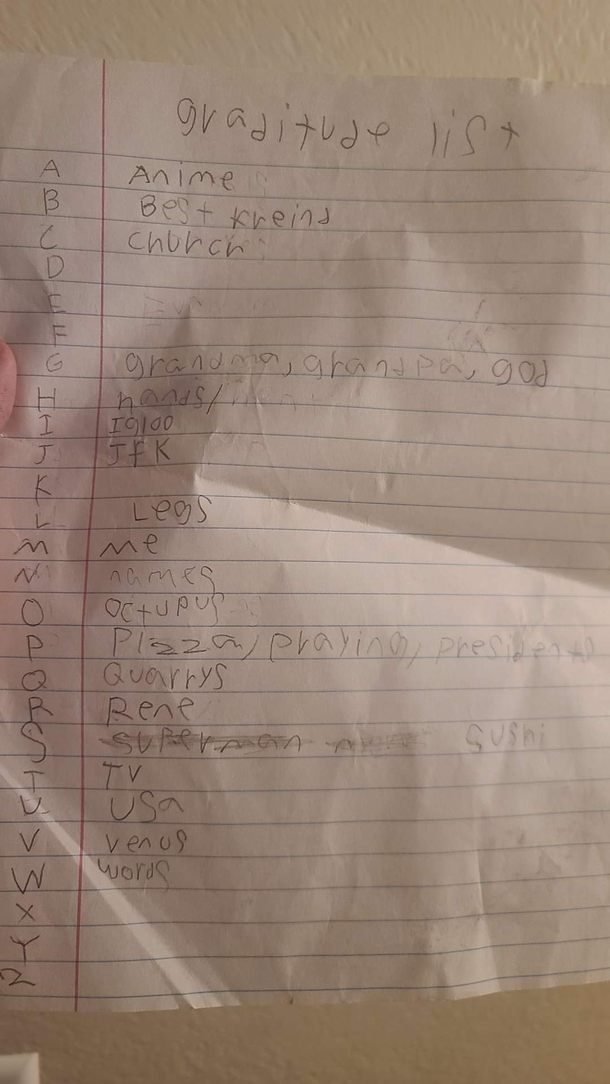 graditude list
A Anime
B Best kreind
C church
D
E
F
G grandma, grandpa, god
H hands/
I Igloo
J JfK
K
L Legs
M me
N names
O octupus
P Pizza, praying, presidents
Q Quarrys
R Rene
S superman sushi
T TV
U USa
V venus
W words
X
Y
Z